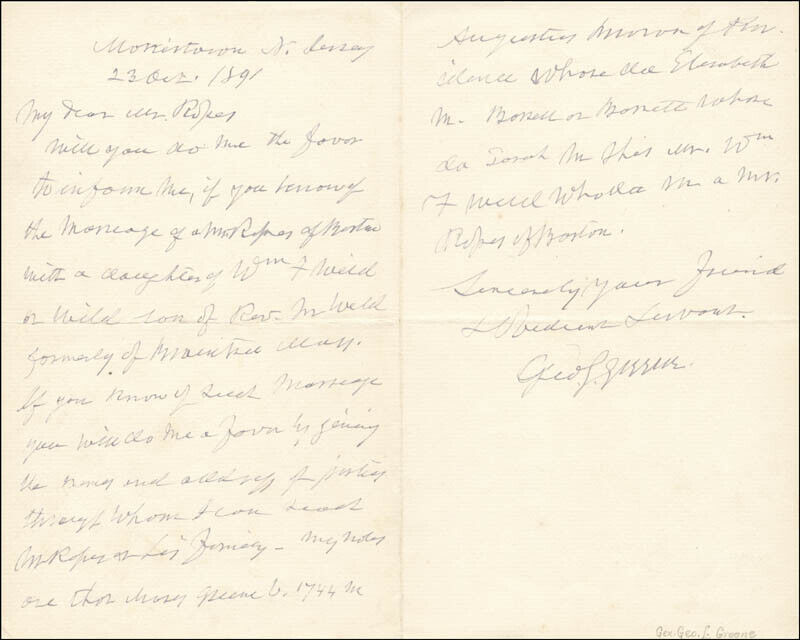 Morristown N. Jersey
23 Oct. 1891
My dear Mr. Ropes
Will you do me the favor
to inform me, if you know of
the marriage of a Mr Ropes of Boston
with a daughter of Wm F Weld
or Wild son of Rev. Mr Weld
formerly of Braintree Mass.
If you know of such marriage
you will do me a favor by giving
the names and address of parties
through whom I can reach
Mr Ropes or his family - My notes
are that Mary Greene b. 1744 m
Augustus
whose da Elizabeth
m. or whose
da Sarah m this Mr. Wm
F Weld who da m a Mr.
Ropes of Boston.
Sincerely your friend
& Obedient Servant.
Geo S. Greene.
Gen. Geo. S. Greene